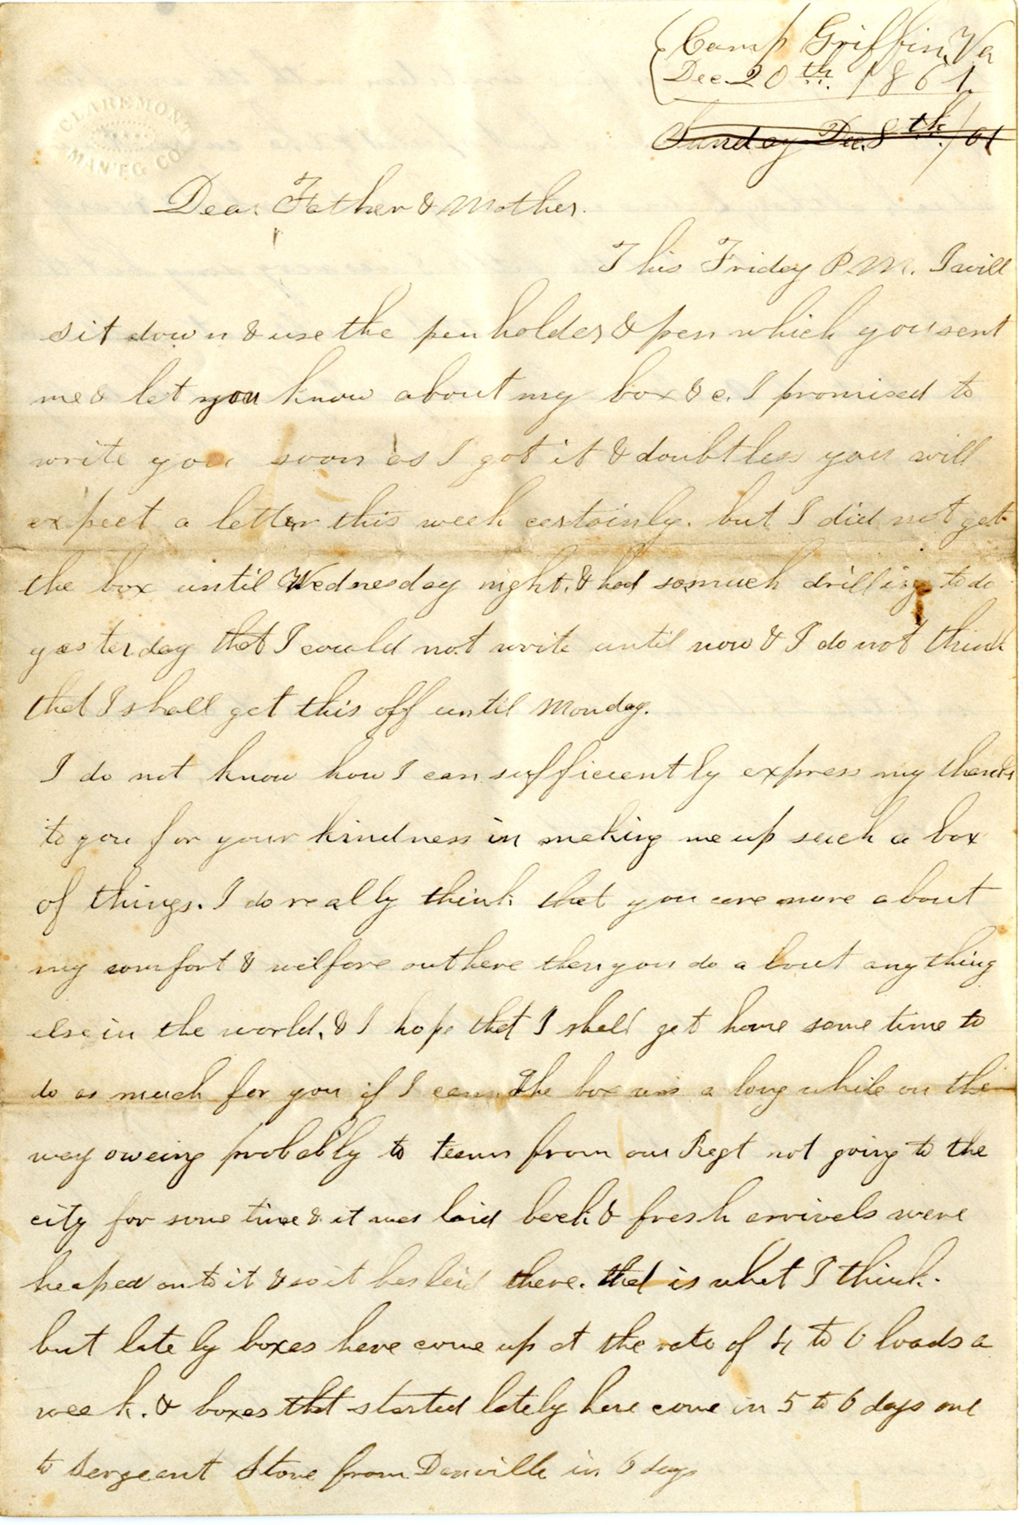 Camp Griffin, Va
Dec 20th. 1861.
Sunday Dec. 8th /61
CLAREMONT
MAN'F'G CO.
Dear Father & Mother.
This Friday P.M. I will
sit down & use the pen holder & pen which you sent
me & let you know about my box &c. I promised to
write you soon as I got it & doubtless you will
expect a letter this week certainly. but I did not get
the box until Wednesday night. & had so much drilling to do
yesterday that I could not write until now & I do not think
that I shall get this off until Monday.
I do not know how I can sufficiently express my thanks
to you for your kindness in making me up such a box
of things. I do really think that you care more about
my comfort & wilfare out here then you do about anything
else in the world, & I hope that I shall get home some time to
do as much for you if I can. The box was a long while on the
way oweing probably to teams from our Regt not going to the
city for some time & it was laid back & fresh arrivels were
heaped onto it & so it has laid there. that is what I think.
but lately boxes have come up at the rate of 4 to 6 loads a
week. & boxes that started lately have come in 5 to 6 days one
to Sergeant Stone from Danville in 6 days